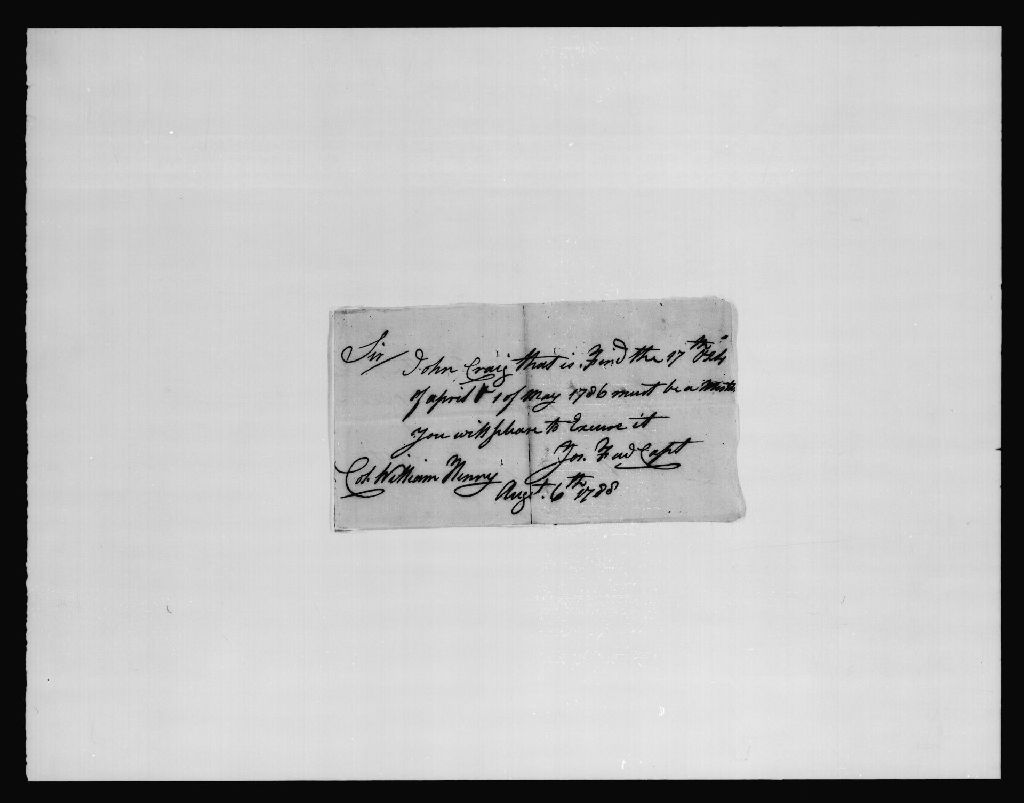 Sir
John Craig that is Find the 17th Feb
of april & 1 of May 1786 must be a Mista
You will please to Excuse it
Jos. Fad Capt
Col. William Henry
Augt. 6th 1788